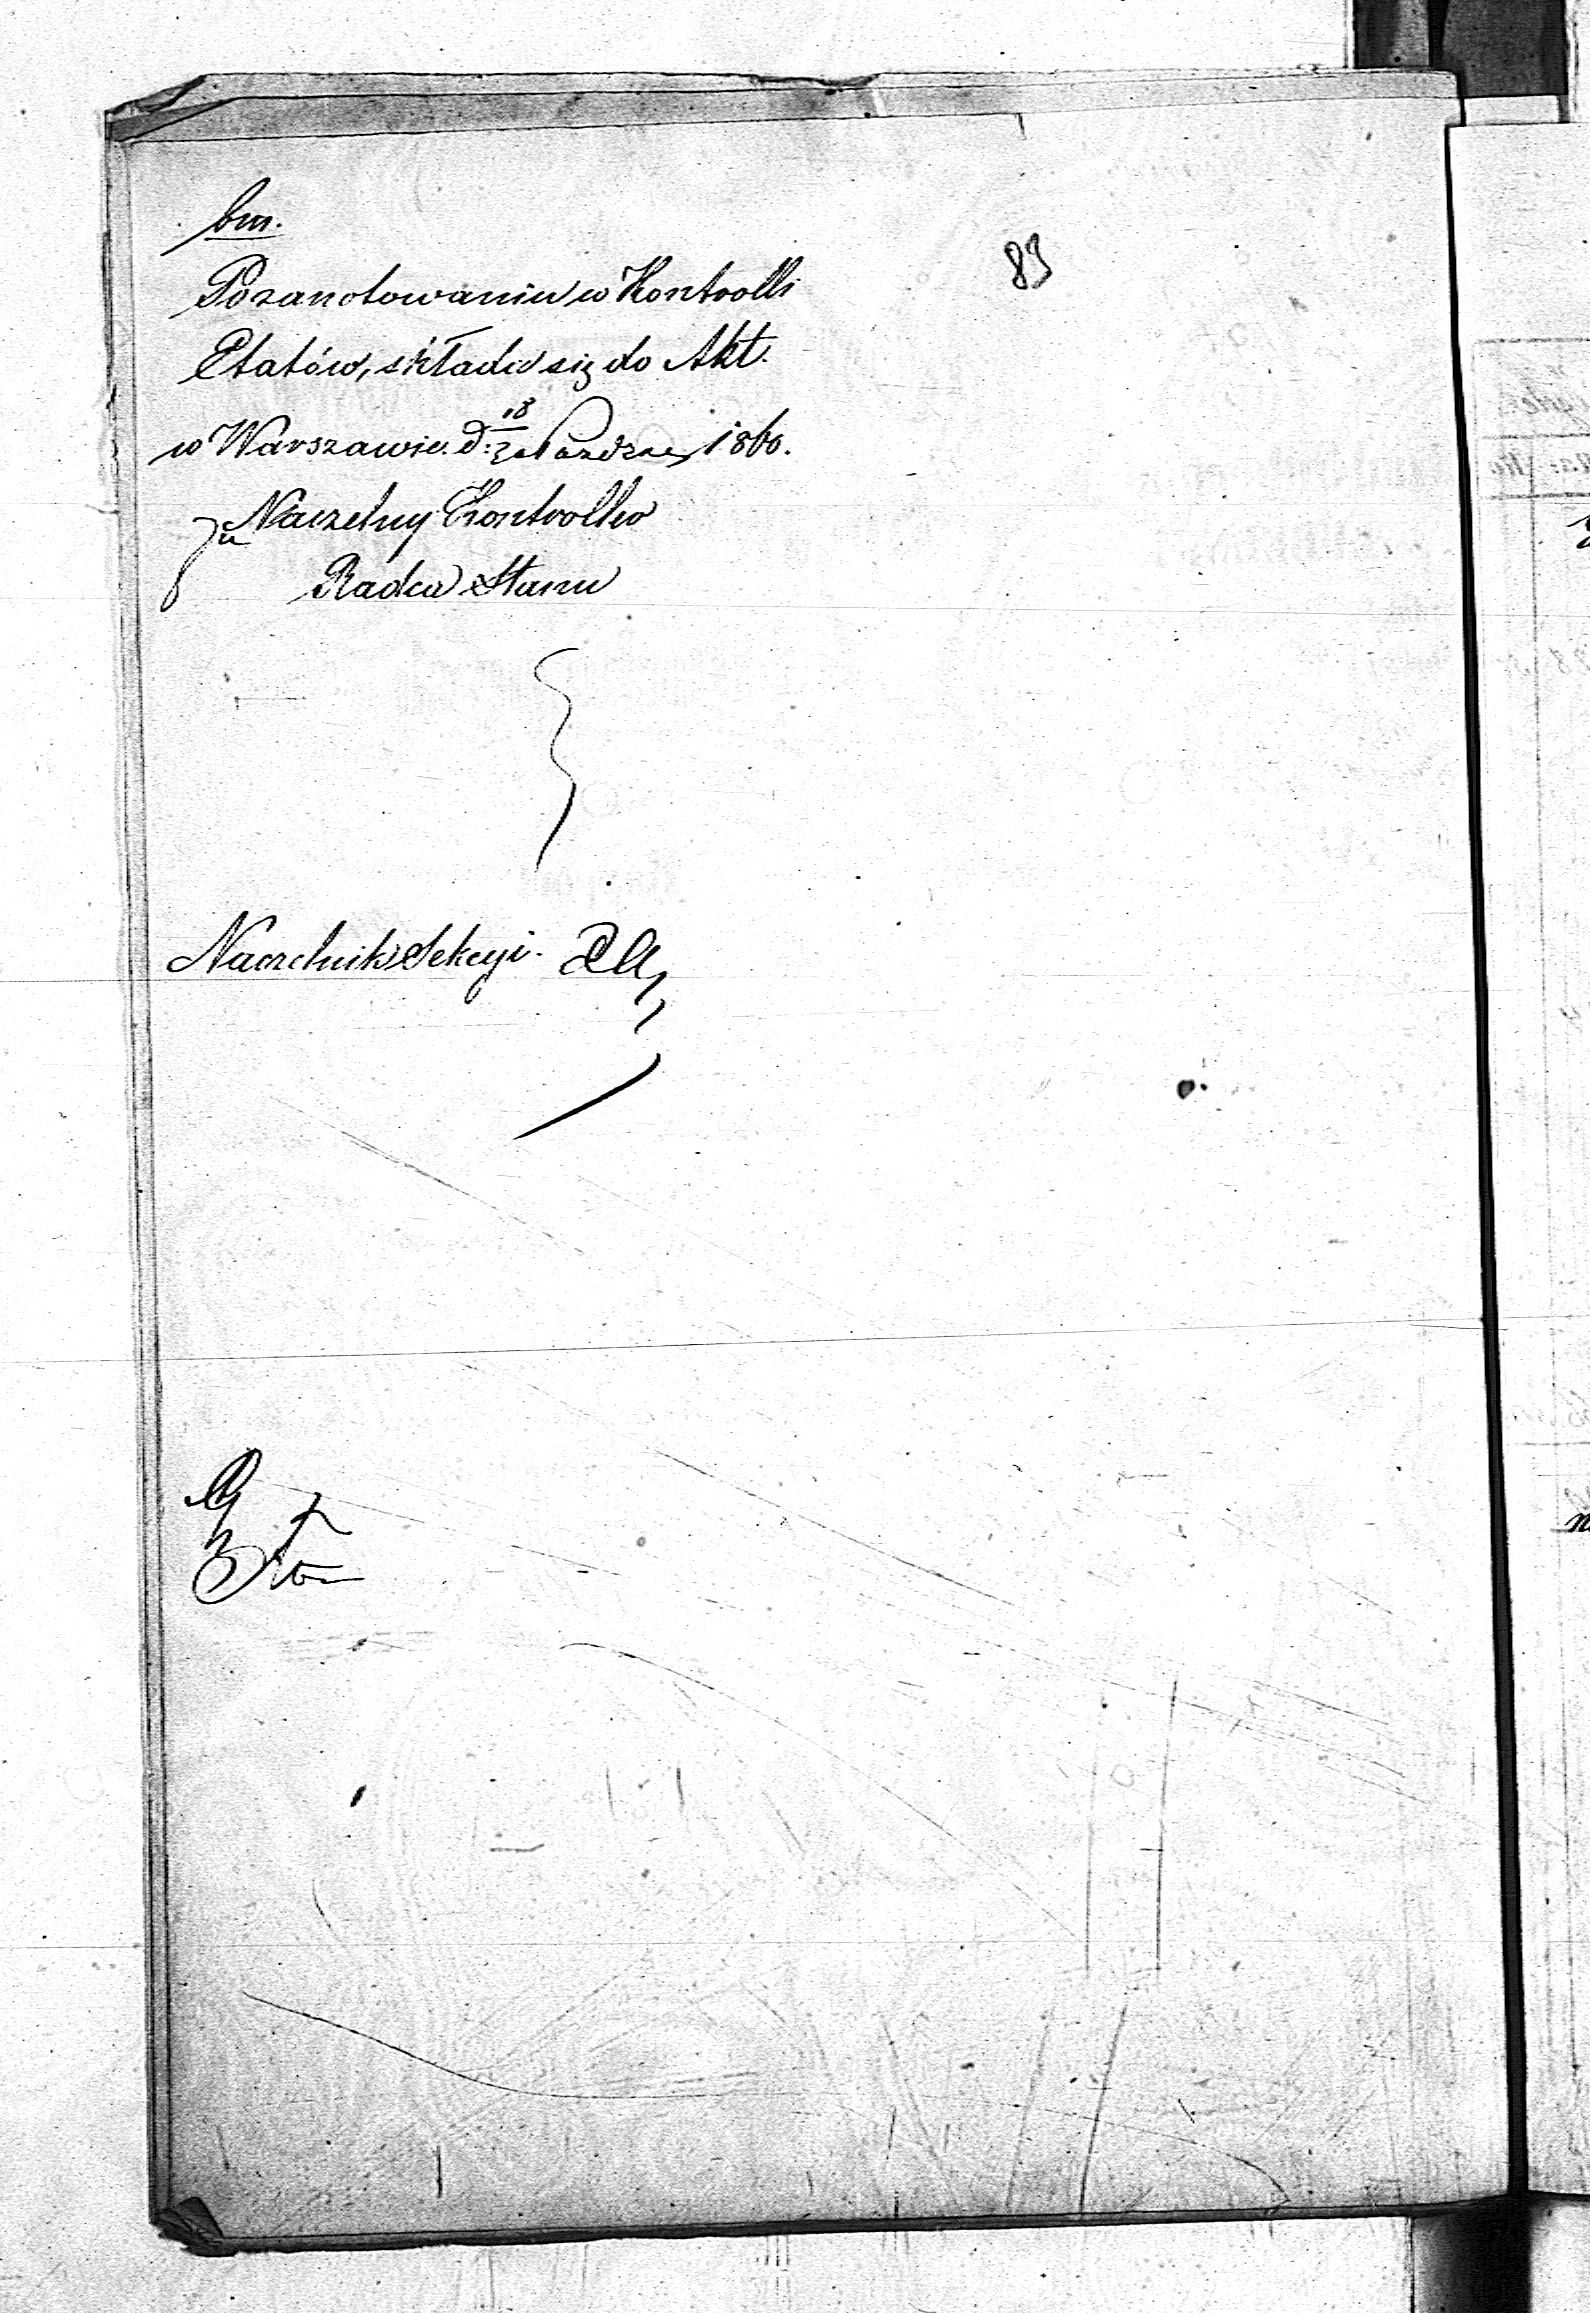 bm.
83
Po zanotowaniu w Kontrolli
Etatów, składa się do Akt.
w Warszawie d. 18/30 Paźdrze 1860.
za Naczelny Kontroller
Radca Stanu
Naczelnik Sekcyi.